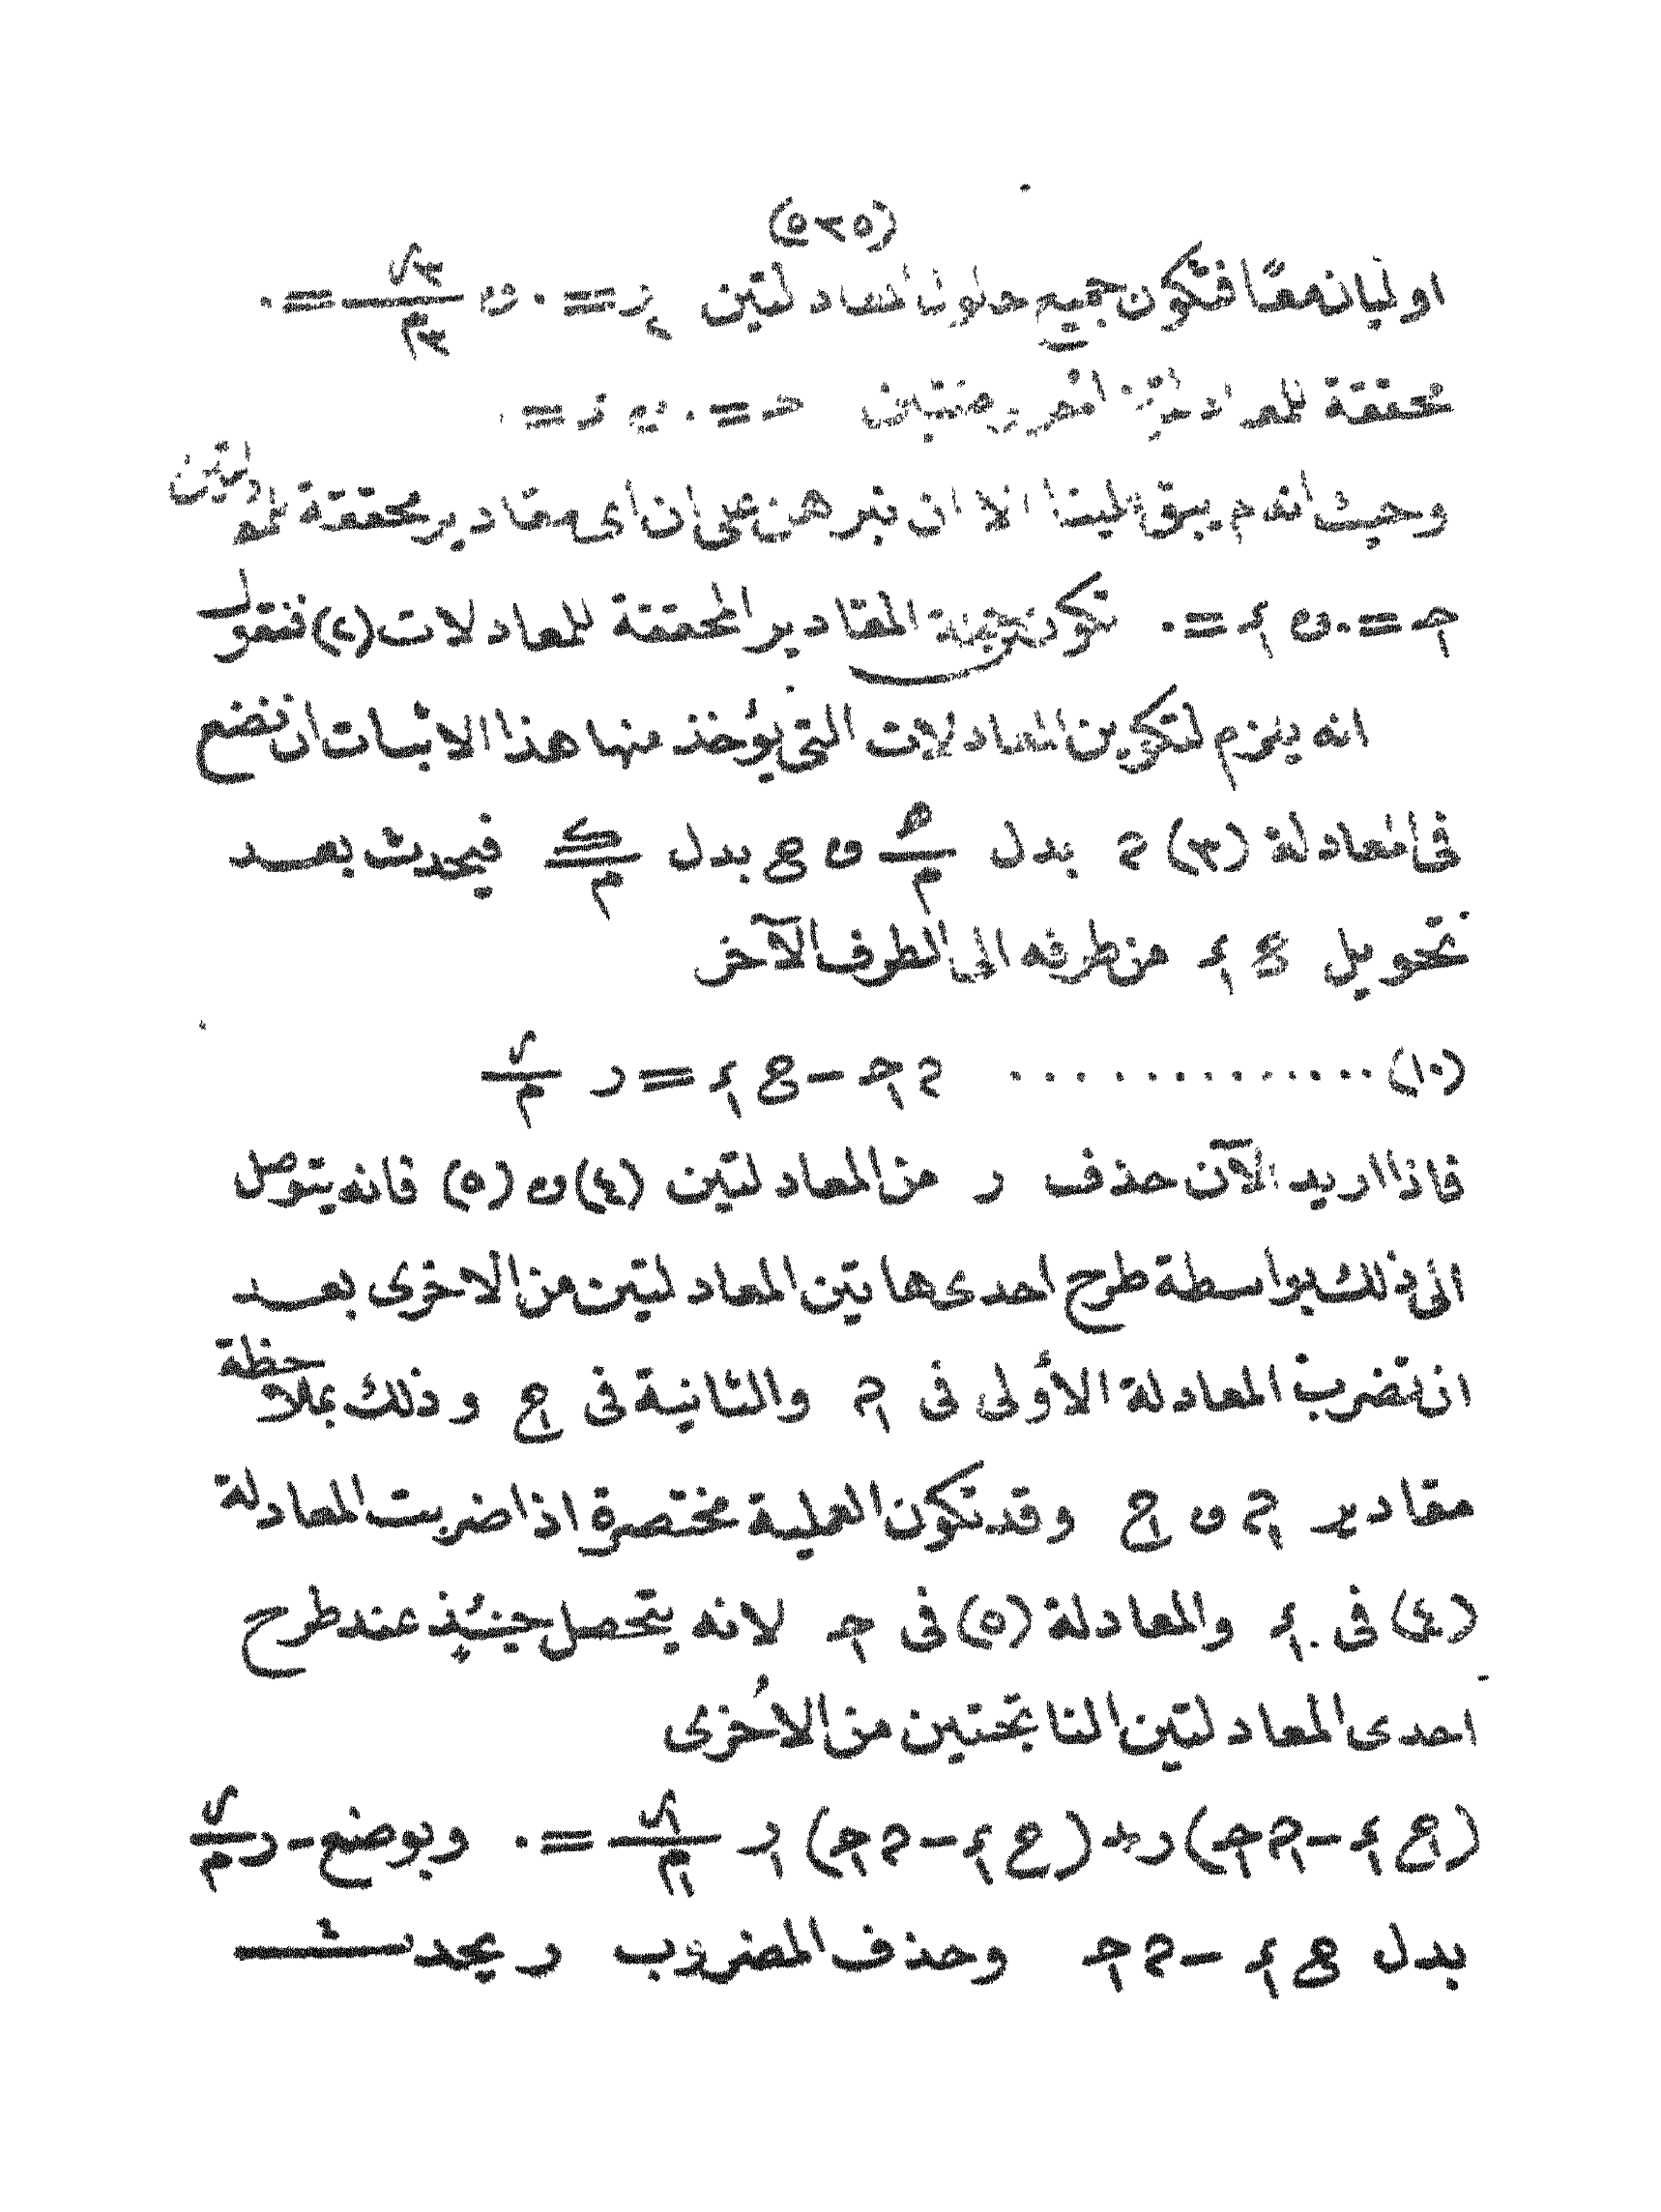 (٥٢٥)
اوليانه معًا فتكون جميع حلول المعادلتين ر٢ = ٠ و ٣س/٣م = ٠
محققة للمعادلتين المفروضتين حـ = ٠ و ء = ٠
وحيث انه لم يبق علينا الا ان نبرهن على ان اى مقادير محققة للمعادلتين
حـ١ = ٠ و ء١ = ٠ تكون جميعة المقادير المحققة للمعادلات (٢) فنقول
انه يلزم لتكوين المعادلات التى يؤخذ منها هذا الاثبات ان نضع
فى المعادلة (٣) ح بدل هـ/م و ع بدل ك/م فيحدث بعد
تحويل ع ء١ من طرفه الى الطرف الآخر
(١٠) . . . . . . . . . . . . . ح حـ١ − ع ء١ = ر س/م
فاذا اريد الآن حذف ر من المعادلتين (٤) و (٥) فانه يتوصل
الى ذلك بواسطة طرح احدى هاتين المعادلتين من الاخرى بعد
ان تضرب المعادلة الأولى فى ح١ والثانية فى ع١ وذلك بملاحظة
مقادير ح١ و ع١ وقد تكون العملية مختصرة اذا ضربت المعادلة
(٤) فى ء١ والمعادلة (٥) فى حـ١ لانه يتحصل حينئذ عند طرح
احدى المعادلتين الناتجتين من الاُخرى
(ع١ ء١ − ح١ حـ١) ر + (ع ء١ − ح حـ١) ر١ س١/م١ = ٠ وبوضع − ر س/م
بدل ع ء١ − ح حـ١ وحذف المضروب ر يحدث